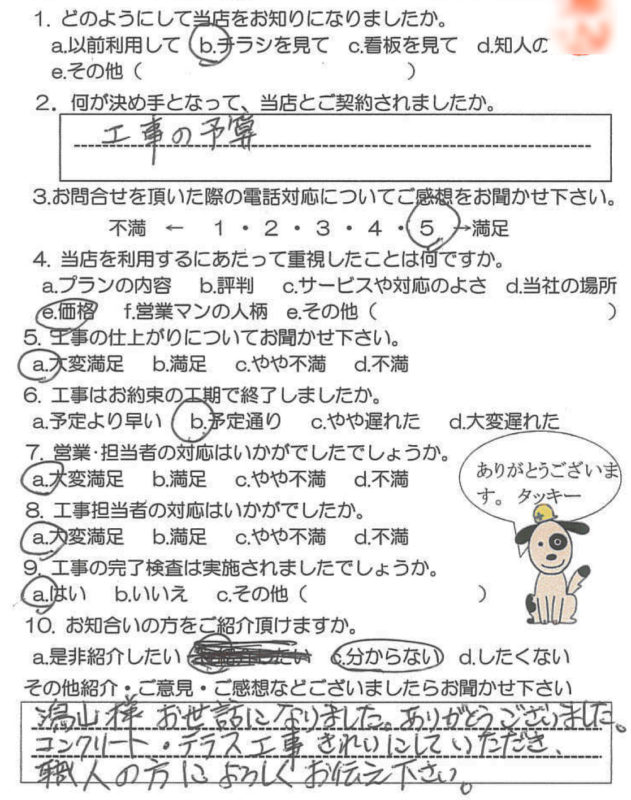 1. どのようにして当店をお知りになりましたか。
a.以前利用して b.チラシを見て c.看板を見て d.知人の
e.その他（ ）
2. 何が決め手となって、当店とご契約されましたか。
工事の予算
3.お問合せを頂いた際の電話対応についてご感想をお聞かせ下さい。
不満 ← 1・2・3・4・5 →満足
4. 当店を利用するにあたって重視したことは何ですか。
a.プランの内容 b.評判 c.サービスや対応のよさ d.当社の場所
e.価格 f.営業マンの人柄 e.その他（ ）
5. 工事の仕上がりについてお聞かせ下さい。
a.大変満足 b.満足 c.やや不満 d.不満
6. 工事はお約束の工期で終了しましたか。
a.予定より早い b.予定通り c.やや遅れた d.大変遅れた
7. 営業・担当者の対応はいかがでしたでしょうか。
a.大変満足 b.満足 c.やや不満 d.不満
ありがとうございま
す。 タッキー
8. 工事担当者の対応はいかがでしたか。
a.大変満足 b.満足 c.やや不満 d.不満
9. 工事の完了検査は実施されましたでしょうか。
a.はい b.いいえ c.その他（ ）
10. お知合いの方をご紹介頂けますか。
a.是非紹介したい c.分からない d.したくない
その他紹介・ご意見・ご感想などございましたらお聞かせ下さい
潟山様 お世話になりました。ありがとうございました。
コンクリート・テラス工事 きれいにしていただき、
職人の方によろしくお伝え下さい。